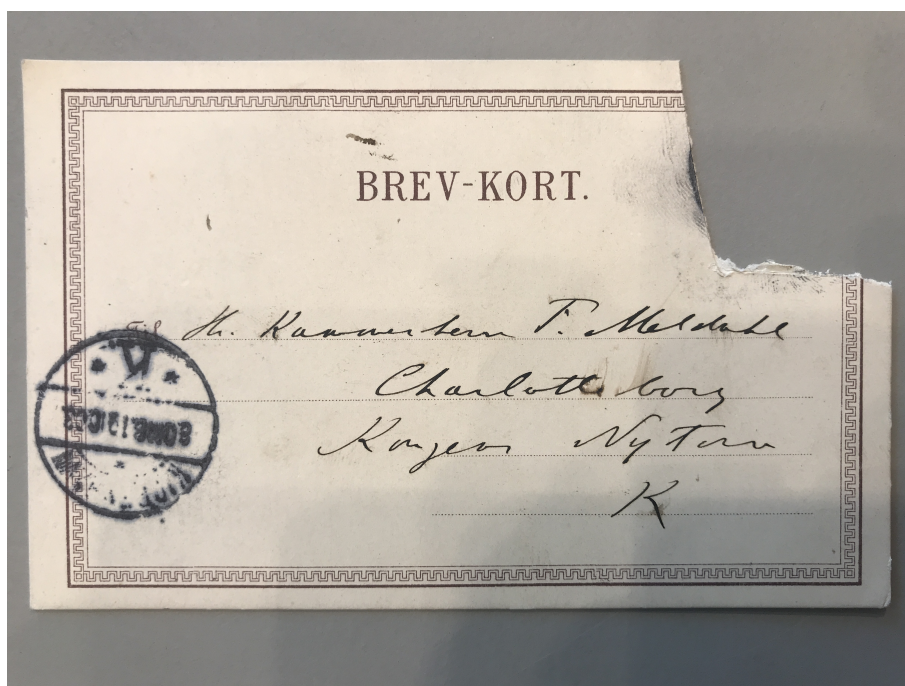 BREV-KORT.
Til Hr. Kammerherre F. Meldahl
Charlottenborg
Kongens Nytorv
K
K